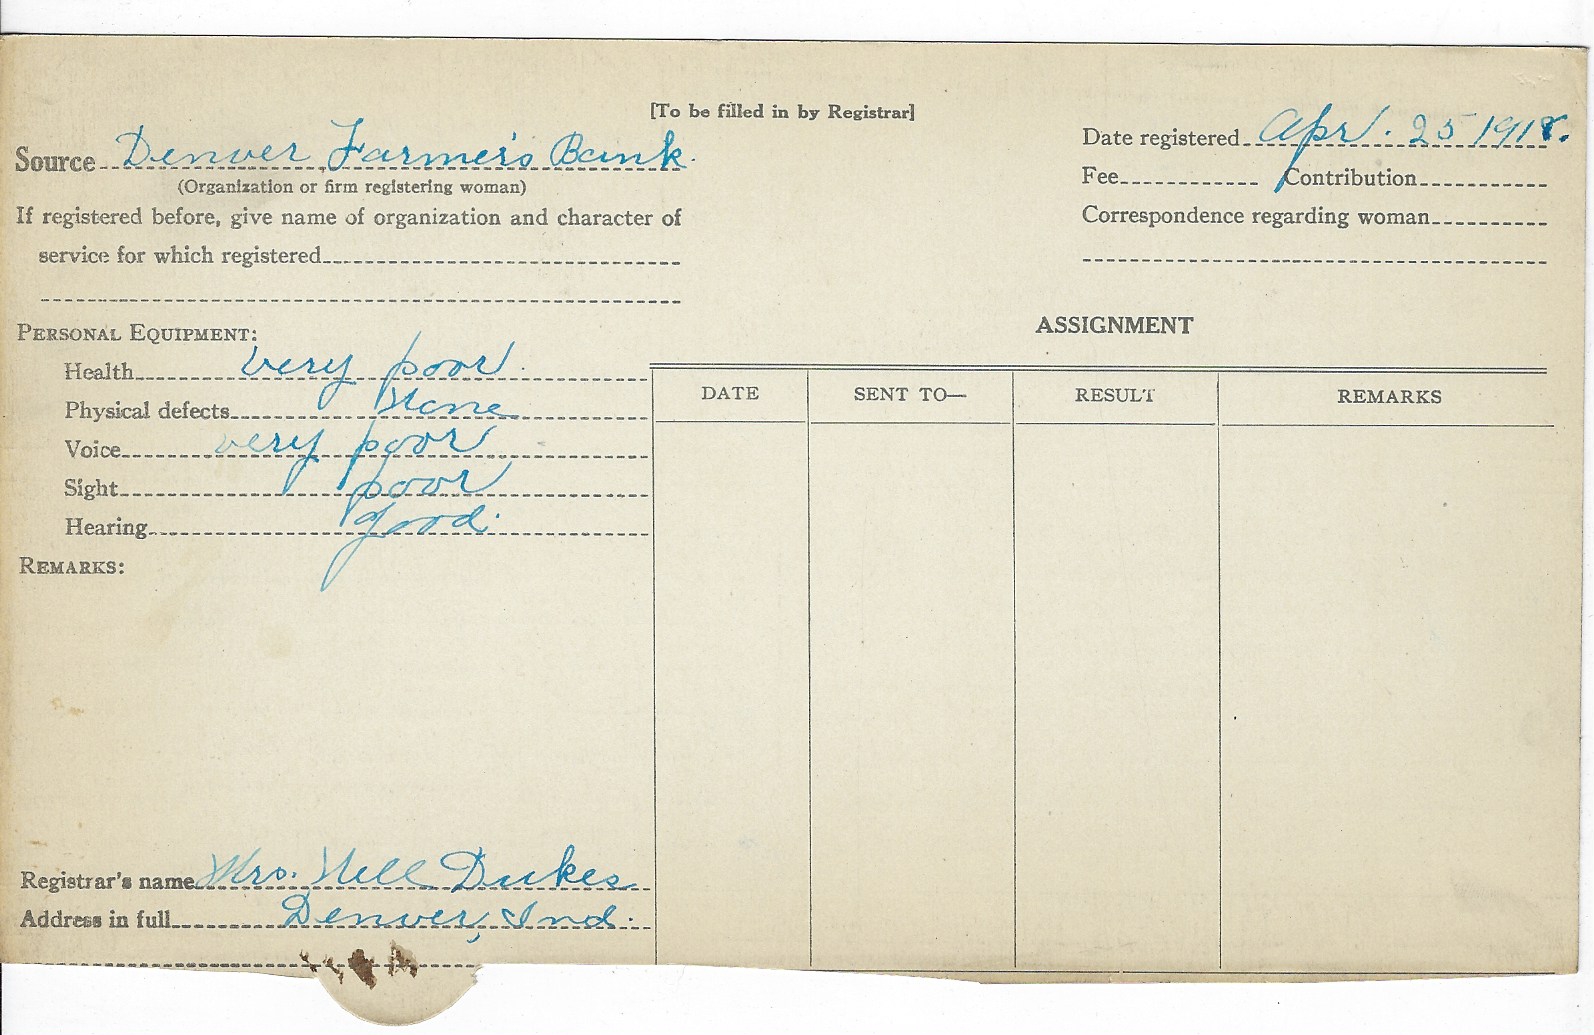 [To be filled in by Registrar]
Source Denver Farmer's Bank.
(Organization or firm registering woman)
If registered before, give name of organization and character of
service for which registered
Date registered Apr. 25 1918.
Fee Contribution
Correspondence regarding woman
PERSONAL EQUIPMENT:
Health very poor.
Physical defects None
Voice very poor
Sight poor
Hearing good.
REMARKS:
ASSIGNMENT
DATE SENT TO— RESULT REMARKS
Registrar's name Mrs. Nell Dukes
Address in full Denver, Ind.